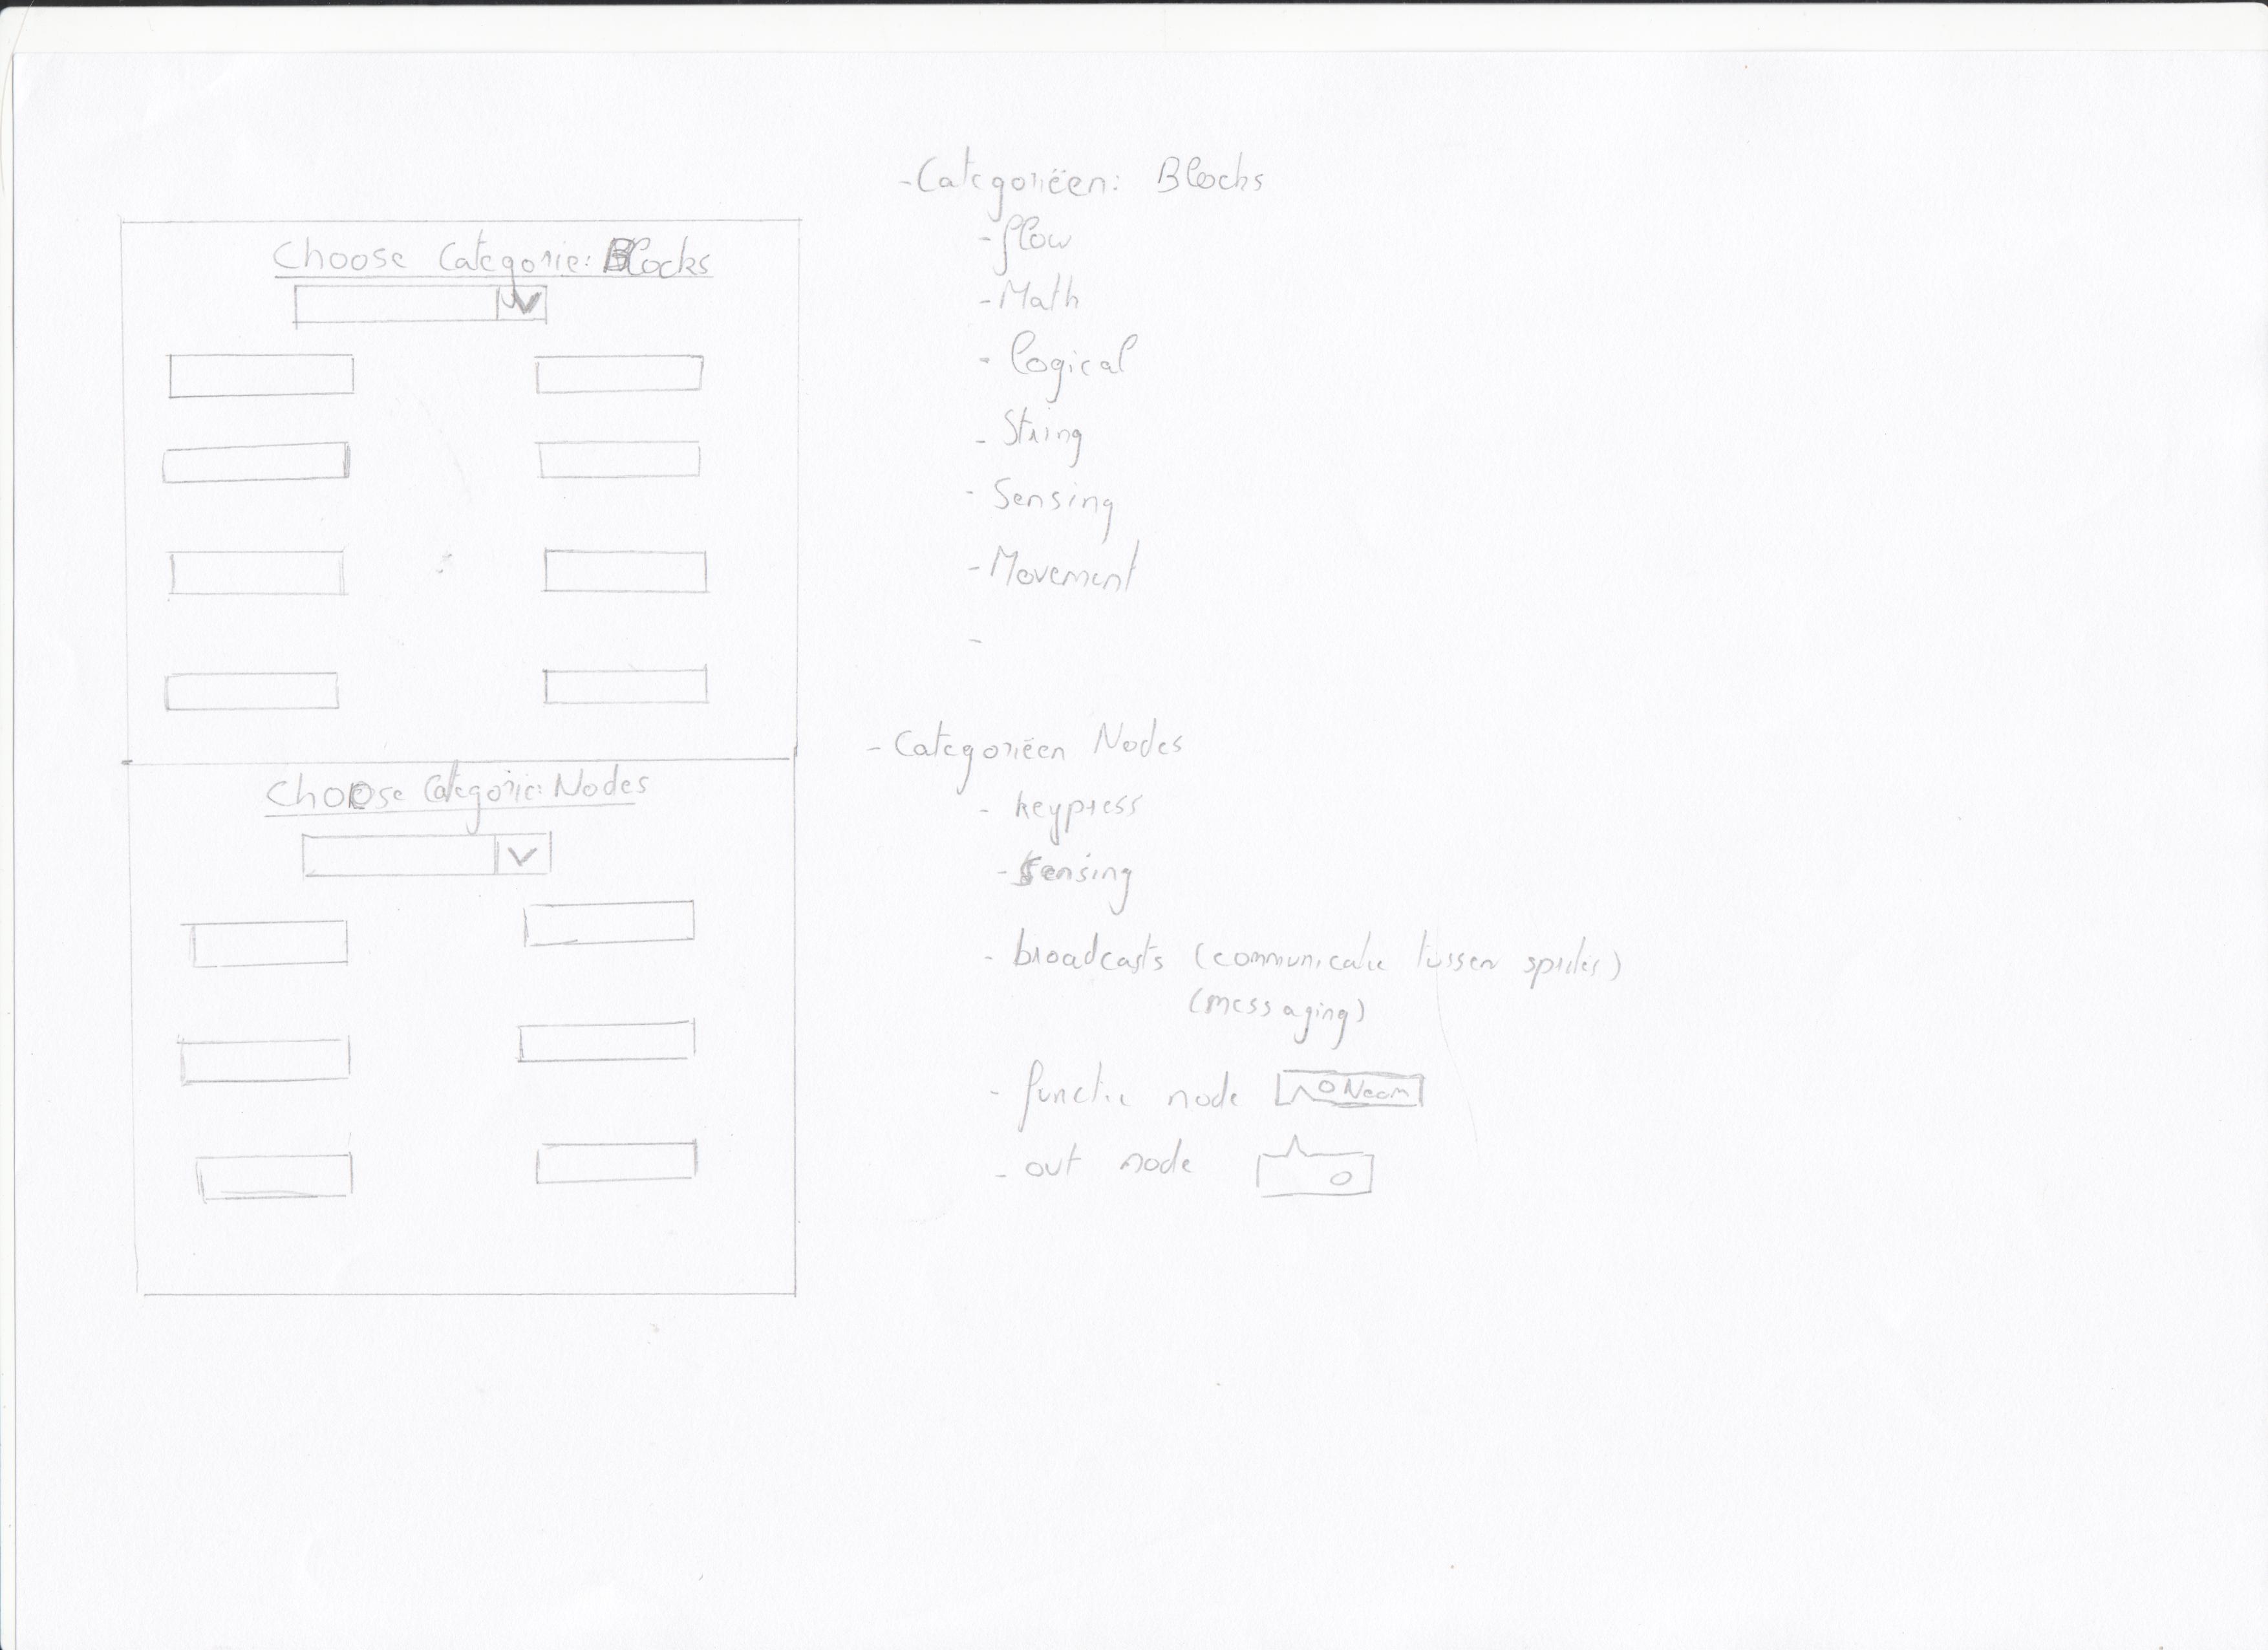 Choose Categorie: Blocks
Choose Categorie: Nodes
- Categorieën: Blocks
- flow
- Math
- logical
- String
- Sensing
- Movement
-
- Categorieën Nodes
- keypress
- Sensing
- broadcasts (communicatie tussen sprites)
(messaging)
- functie node Naam
- out node